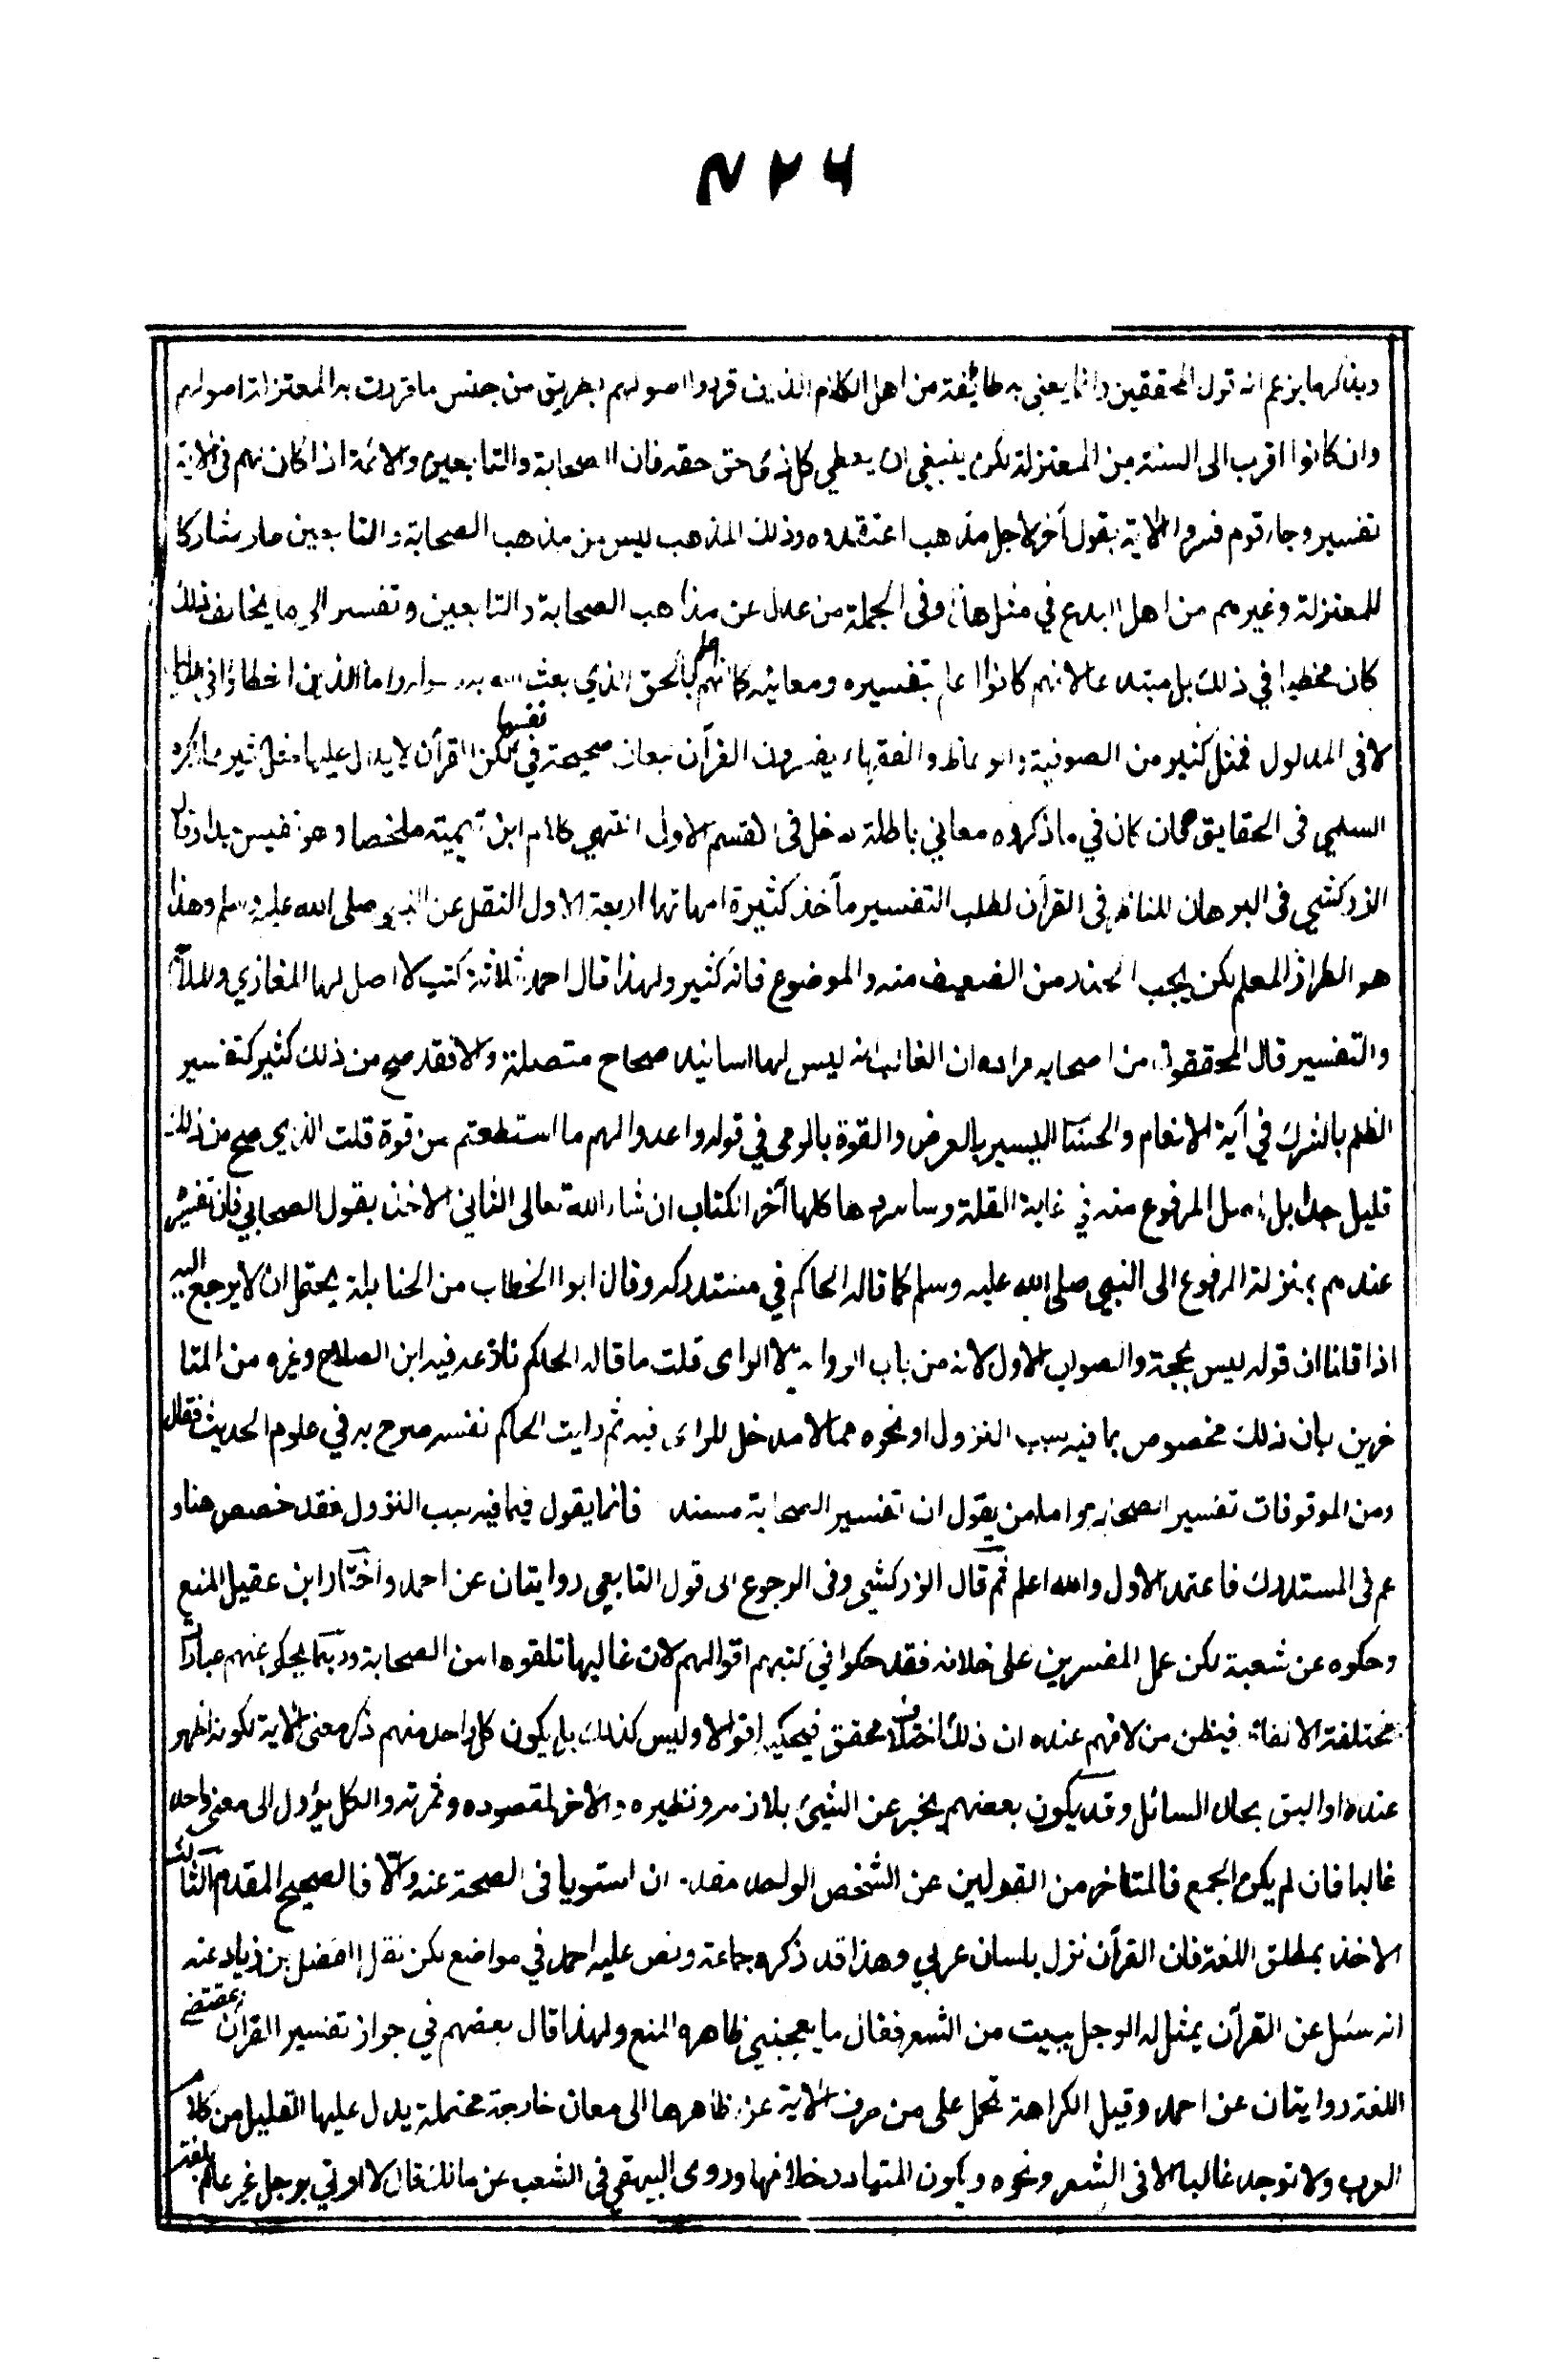 ٤٢٦
ويذكر ما يزعم انه قول المحققين وانما يعني به طائفة من اهل الكلام الذين قرروا اصولهم بطريق من جنس ما قررت به المعتزلة اصولهم
وان كانوا اقرب الى السنة من المعتزلة لكن ينبغي ان يعطي كل ذي حق حقه فان الصحابة والتابعين والائمة اذا كان لهم في الاية
تفسير وجاء قوم فسروا الاية بقول آخر لاجل مذهب اعتقدوه وذلك المذهب ليس من مذهب الصحابة والتابعين صار مشاركا
للمعتزلة وغيرهم من اهل البدع في مثل هذا وفي الجملة من عدل عن مذاهب الصحابة والتابعين وتفسيرهم الى ما يخالف ذلك
كان مخطيا في ذلك بل مبتدعا لانهم كانوا اعلم بتفسيره ومعانيه كما انهم اعلم بالحق الذي بعث الله به رسوله واما الذين اخطاؤا في الدليل
لا في المدلول فمثل كثير من الصوفية والوعاظ والفقهاء يفسرون القرآن بمعان صحيحة في نفسها لكن القرآن لا يدل عليها مثل كثير مما ذكره
السلمي في الحقايق فان كان في ما ذكروه معاني باطلة دخل في القسم الاول انتهى كلام ابن تيمية ملخصا وهو نفيس جدا وقال
الزركشي في البرهان للناظر في القرآن لطلب التفسير مآخذ كثيرة امهاتها اربعة الاول النقل عن النبي صلى الله عليه وسلم وهذا
هو الطراز المعلم لكن يجب الحذر من الضعيف منه والموضوع فانه كثير ولهذا قال احمد ثلاثة كتب لا اصل لها المغازي والملاحم
والتفسير قال المحققون من اصحابه مراده ان الغالب انه ليس لها اسانيد صحاح متصلة والا فقد صح من ذلك كثير كتفسير
الظلم بالشرك في آية الانعام والحساب اليسير بالعرض والقوة بالرمي في قوله واعدوا لهم ما استطعتم من قوة قلت الذي صح من ذلك
قليل جدا بل اصل المرفوع منه في غاية القلة وساسردها كلها آخر الكتاب ان شاء الله تعالى الثاني الاخذ بقول الصحابي فان تفسيره
عندهم بمنزلة المرفوع الى النبي صلى الله عليه وسلم كما قاله الحاكم في مستدركه وقال ابو الخطاب من الحنابلة يحتمل ان لا يرجع اليه
اذا قلنا ان قوله ليس بحجة والصواب الاول لانه من باب الرواية لا الراي قلت ما قاله الحاكم نازعه فيه ابن الصلاح وغيره من المتا
خرين بان ذلك مخصوص بما فيه سبب النزول او نحوه مما لا مدخل للراى فيه ثم رايت الحاكم نفسه صرح به في علوم الحديث فقال
ومن الموقوفات تفسير الصحابة واما من يقول ان تفسير الصحابة مسند فانما يقول فيما فيه سبب النزول فقد خصص هنا و
عم في المستدرك فاعتمد الاول والله اعلم ثم قال الزركشي وفي الرجوع الى قول التابعي روايتان عن احمد واختار ابن عقيل المنع
وحكوه عن شعبة لكن عمل المفسرين على خلافه فقد حكوا في كتبهم اقوالهم لان غالبها تلقوها من الصحابة وربما يحكى عنهم عبارات
مختلفة الالفاظ فيظن من لا فهم عنده ان ذلك اختلاف محقق فيحكيه اقوالا وليس كذلك بل يكون كل واحد منهم ذكر معنى الاية لكونه اظهر
عنده او اليق بحال السائل وقد يكون بعضهم يخبر عن الشيئ بلازمه ونظيره والاخر لمقصوده وثمرته والكل يؤول الى معنى واحد
غالبا فان لم يكن الجمع فالمتاخر من القولين عن الشخص الواحد مقدم ان استويا في الصحة عنه والا فالصحيح المقدم الثالث
الاخذ بمطلق اللغة فان القرآن نزل بلسان عربي وهذا قد ذكره جماعة ونص عليه احمد في مواضع لكن نقل الفضل بن زياد عنه
انه سئل عن القرآن يمثل له الرجل ببيت من الشعر فقال ما يعجبني ظاهره المنع ولهذا قال بعضهم في جواز تفسير القرآن بمقتضى
اللغة روايتان عن احمد وقيل الكراهة تحمل على من صرف الاية عن ظاهرها الى معان خارجة محتملة يدل عليها القليل من كلام
العرب ولا توجد غالبا الا في الشعر ونحوه ويكون المتبادر خلافها وروى البيهقي في الشعب عن مالك قال لا اوتي برجل غير عالم بلغة